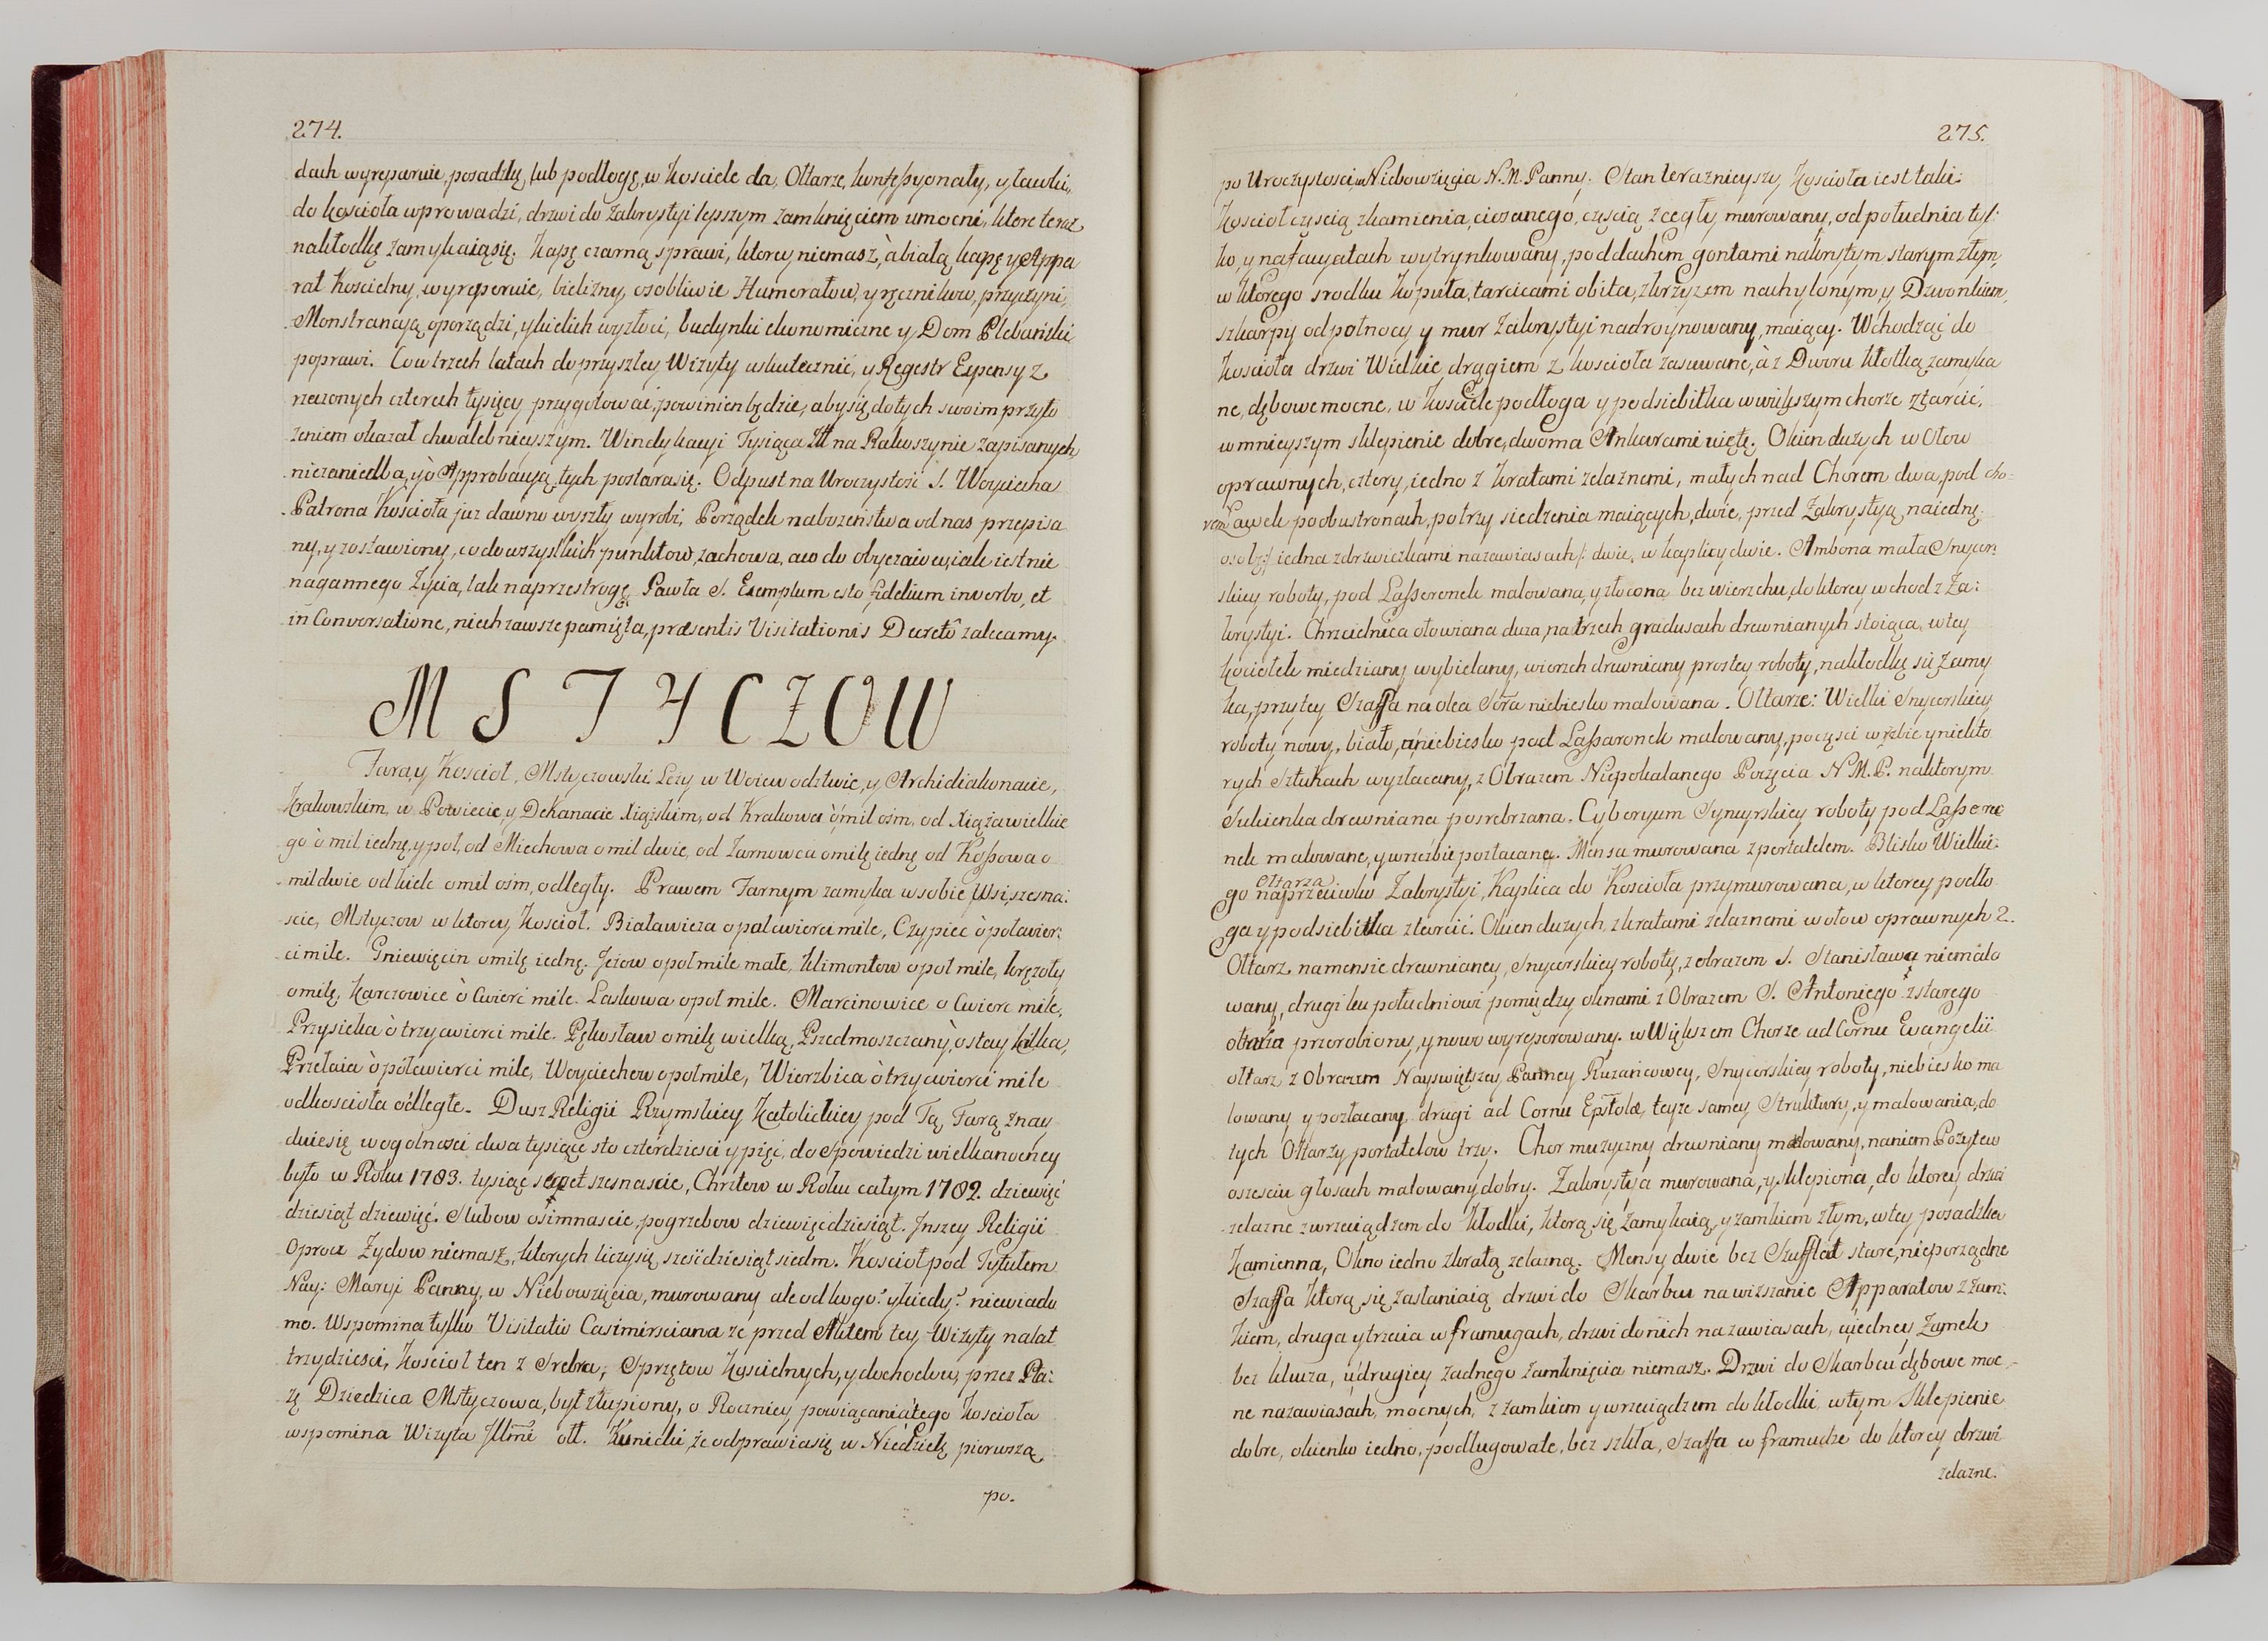 274.
dach wyreparuie, posadzkę, lub podłogę, w Kosciele da, Ołtarze, konfessyonały, y ławki,
do kościoła wprowadzi, drzwi do Zakrystyi lepszym zamknięciem umocni, ktore teraz
nakłodkę zamykaiąsię. Kapę czarną sprawi, ktorey niemasz, à białą kapę y Appa
rat Koscielny, wyreperuie, bielizny, osobliwie Humerałow, y ręcznikow, przyczyni,
Monstrancyą, oporządzi, y kielich wyzłoci, budynki ekonomiczne y Dom Plebański
poprawi. Co w trzech latach do przyszłey Wizyty uskutecznić, y Regestr Expensy z
rzeczonych czterech tysięcy przygotować, powinien będzie, aby się do tych swoim przyło
żeniem okazał chwalebnieyszym. Windykacyi Tysiąca Zł na Rakoszynie zapisanych,
niezaniedba, y ò Approbacyą tych postarasię. Odpust na Uroczystość S. Woyciecha
Patrona Kościoła juz dawno wyszły wyrobi, Porządek nabozeństwa od nas przepisa
ny, y zostawiony, co do wszystkich punktow, zachowa, a co do obyczaiow, iak iest nie
nagannego Zycia, tak na przestrogę Pawła S. Exemplum esto fidelium in verbo, et
in Conversatione, niech zawsze pamięta, præsentis Visitationis Decretô zalecamy.
MSTYCZOW
Fara, y Kościoł, Mstyczowski Lezy w Woiewodztwie, y Archidiakonacie,
Krakowskim, w Powiecie, y Dekanacie Xiązskim, od Krakowa ò mil ośm, od Xiąża wielkie
go ò mil iednę, y pol, od Miechowa o mil dwie, od Zarnowca o milę iednę od Kossowa o
mil dwie od kielc o mil ośm, odległy. Prawem Farnym zamyka w sobie Wsi szesna:
scie, Mstyczow w ktorey Kosciol. Białawieza o poł cwierci mile, Czypiec ò poł cwier:
ci mile. Gniewięcin o milę iednę. Jeżow o poł mile małe, Klimontow o poł mile, krężoły
o milę, Karczowice ò Cwierć mile. Laskowa o poł mile. Marcinowice o Cwierc mile,
Przysieka ò trzy cwierci mile. Pękosław o milę wielką, Przedmoszczany, ò stay kilka,
Przełaia ò poł cwierci mile, Woyciechow o poł mile, Wierzbica ò trzy cwierci mile
od kościoła odległe. Dusz Religii Rzymskiey Katolickiey pod Tą Farą znay
duie się w ogolnosci dwa tysiące sto czterdziesci y pięć, do Spowiedzi wielkanocney
było w Roku 1783. tysiąc szescset szesnascie, Chrztow w Roku całym 1782. dziewięć
dziesiąt dziewięć. Slubow ośimnascie, pogrzebow dziewięćdziesiąt. Jnszey Religii
oprocz Zydow niemasz, ktorych liczy się sześćdziesiąt siedm. Kosciol pod Tytułem
Nay: Maryi Panny, w Niebowzięcia, murowany ale od kogo? y kiedy? niewiado
mo. Wspomina tylko Visitatio Casimirsciana ze przed Aktem tey Wizyty na lat
trzydziesci, Kościoł ten z Srebra, Sprzętow Koscielnych, y dochodow, przez Pta:
zę Dziedzica Mstyczowa, był złupiony, o Rocznicy poświęcania tego Kościoła
wspomina Wizyta Jllmi olt. Kunicki, że odprawia się w Niedzielę pierwszą
po.
275.
po Uroczystosci, w Niebowzięcia N. M. Panny. Stan teraznieyszy Kościoła iest taki:
Kościoł częscią zkamienia, ciosanego, częscią z cegły, murowany, od południa tyl:
ko, y na facyatach wytrynkowany, pod dachem gontami nakrytym starym złym,
w ktorego srodku Kopuła, tarcicami obita, z krzyzem nachylonym y Dzwonkiem,
szkarpy od połnocy y mur Zakrystyi nadroynowany, maiący. Wchodząc do
Kościoła drzwi Wielkie drągiem z kosciola zasuwane, à z Dworu kłotką zamyka
ne, dębowe mocne, w Kosciele podłoga y podsiebitka w większym chorze z tarcić,
w mnieyszym sklepienie dobre, dwoma Ankarami uięte. Okien dużych w Ołow
oprawnych, cztery, iedno z kratami zelaznemi, małych nad Chorem dwa, pod cho-
rem Ławek po obu stronach, po trzy siedzenia maiących, dwie, przed Zakrystyą na iednę
osobę/: iedna z drzwiczkami na zawiasach:/ dwie, w kaplicy dwie. Ambona mała Snycer:
skiey roboty, pod Lasserunek malowana, y złocona bez wierzchu, do ktorey wchod z Za:
krystyi. Chrzcielnica ołowiana duza, na trzech gradusach drewnianych stoiąca, w tey
kociołek miedziany wybielany, wierzch drewniany prostey roboty, na kłodkę się zamy
ka, przy tey Szaffa na olea Sta niebiesko malowana. Ołtarze: Wielki Snycerskiey
roboty nowy, biało, à niebiesko pod Lassarunek malowany, po częsci w rzbie y niekto
rych Sztukach wyzłacany, z Obrazem Niepokalanego Poczęcia N. M. P. na ktorym
Sukienka drewniana posrebrzana. Cyboryum Synycerskiey roboty pod Lassero
nek malowane, y w rzezbie pozłacane. Mensa murowana z portatelem. Blisko Wielkie:
go Ołtarza naprzeciwko Zakrystyi, Kaplica do Kościoła przymurowana, w ktorey podło
ga y podsiebitka z tarcić. Okien dużych, z kratami zelaznemi w ołow oprawnych 2.
Ołtarz na mensie drewnianey, snycerskiey roboty, z obrazem S. Stanisława niemalo
wany, drugi ku południowi pomiędzy oknami z Obrazem S. Antoniego z starego
ołtarza przerobiony, y nowo wyreperowany. w Większem Chorze ad Cornu Evangelii
ołtarz z Obrazem Nayswiętszey Panney Ruzańcowey, Snycerskiey roboty, niebiesko ma
lowany y pozłacany drugi ad Cornu Epistolæ, teyze samey Struktury, y malowania, do
tych Ołtarzy portatelow trzy. Chor muzyczny drewniany malowany, na niem Pozytew
o szesciu głosach malowany dobry. Zakrystya murowana, y sklepiona, do ktorey drzwi
zelazne z wrzeciądzem do kłodki, ktorą się zamykaią, y zamkiem złym, w tey posadzka
Kamienna, Okno iedno z kratą zelazną. Mensy dwie bez Szufflad stare, nieporządne
Szaffa ktorą się zasłaniaią drzwi do Skarbcu na wieszanie Apparatow z zam:
kiem, druga y trzecia w framugach, drzwi do nich na zawiasach, u iedney Zamek
bez klucza, u drugiey żadnego zamknięcia niemasz. Drzwi do Skarbcu dębowe moc-
ne na zawiasach mocnych, z zamkiem y wrzeciądzem do kłodki, w tym Sklepienie
dobre, okienko iedno, podługowate, bez szkła, Szaffa w framudze do ktorey drzwi
zelazne.